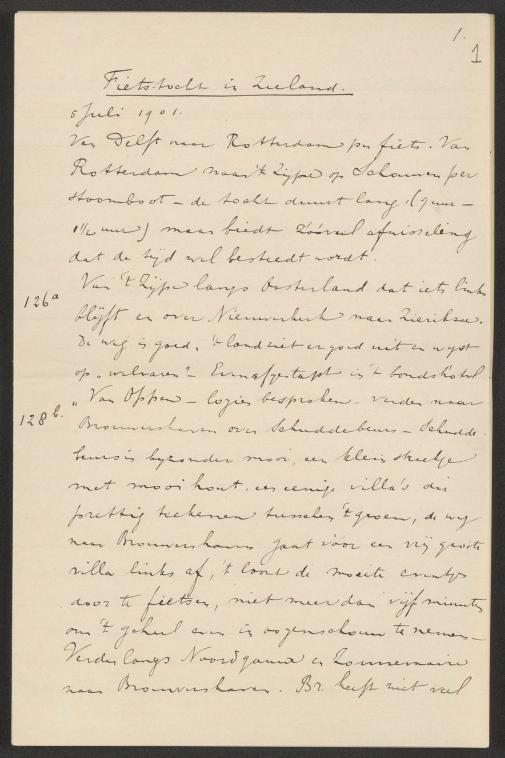 1.
1
Fietstocht in Zeeland.
5 Juli 1901.
Van Delft naar Rotterdam per fiets. Van
Rotterdam naar 't Zijpe op Schouwen per
stoomboot – de tocht duurt lang (9 uur –
1½ uur) maar biedt zóóveel afwisseling
dat de tijd wel besteedt wordt.
126a
Van 't Zijpe langs Oosterland dat iets links
blijft en over Nieuwerkerk naar Zierikzee.
De weg is goed, 't land ziet er goed uit en wijst
op „welvaren" – Even afgestapt in 't bondshotel
128b.
„Van Oppen – logies besproken – verder naar
Brouwershaven over Schuddebeurs – Schudde-
beurs is byzonder mooi, een klein stukje
met mooi hout, en eenige villa's die
prettig teekenen tusschen 't groen, de weg
naar Brouwershaven gaat vóór een vrij groote
villa links af, 't loont de moeite eventjes
door te fietsen, niet meer dan vijf minuten
om 't geheel even in oogenschouw te nemen –
Verder langs Noordgouwe en Zonnemaire
naar Brouwershaven. Br. heeft niet veel